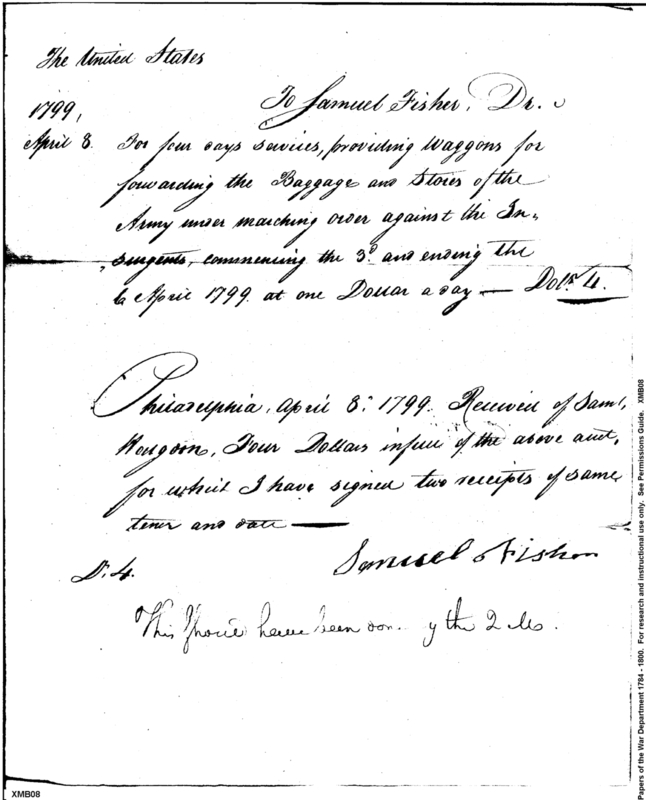 The United States
To Samuel Fisher, Dr.
1799,
April 8. For four days services, providing Waggons for
forwarding the Baggage and Stores of the
Army under marching order against the In,,
,,surgents, commencing the 3d. and ending the
6 April 1799. at one Dollar a day — Dolrs. 4.
Philadelphia, April 8: 1799. Received of Saml.
Hodgdon, Four Dollars in full of the above acct,
for which I have signed two receipts of same
tenor and date —
D. 4.
Samuel Fisher
This should have been don y the 2 Ms.
XMB08
Papers of the War Department 1784 - 1800. For research and instructional use only. See Permissions Guide. XMB08